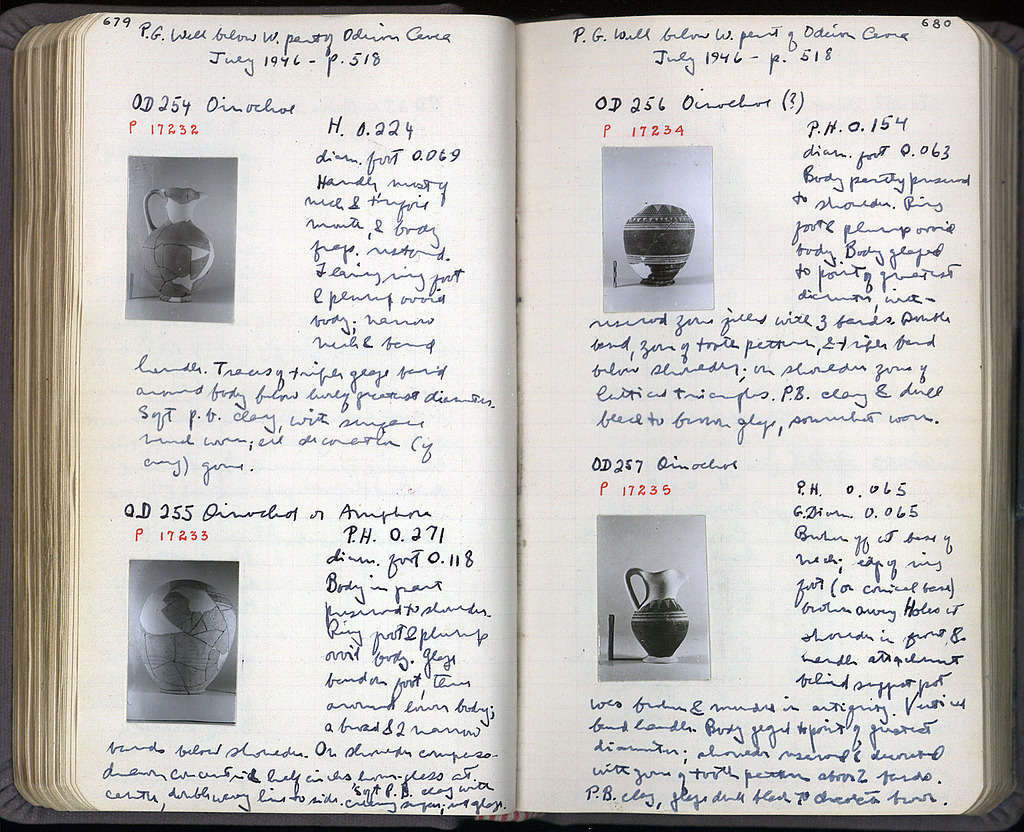 679
P.G. Well below W. part of Odeion Cavea
July 1946 - p. 518
OD 254 Oinochoe
P 17232
H. 0.224
diam. foot 0.069
Handle, most of
neck & trefoil
mouth, & body
frags. restored.
Flaring ring foot
& plump ovoid
body; narrow
neck & band
handle. Traces of triple glaze band
around body below level of greatest diameter.
Soft p.b. clay, with surface
much worn; all decoration (if
any) gone.
OD 255 Oinochoe or Amphora
P 17233
P.H. 0.271
diam. foot 0.118
Body in part
preserved to shoulder.
Ring foot & plump
ovoid body. Glaze
band on foot, three
around lower body;
a broad & 2 narrow
bands below shoulder. On shoulder compass-
drawn concentric half circles hour-glass at
center, double wavy line to side. Soft P.B. clay with
creamy surface; red glaze.
680
P.G. Well below W. part of Odeion Cavea
July 1946 - p. 518
OD 256 Oinochoe (?)
P 17234
P.H. 0.154
diam. foot 0.063
Body partly preserved
to shoulder. Ring
foot & plump ovoid
body. Body glazed
to point of greatest
diameter, with
reserved zone filled with 3 bands. Double
band, zone of tooth pattern, & triple band
below shoulder; on shoulder zone of
latticed triangles. P.B. clay & dull
black to brown glaze, somewhat worn.
OD 257 Oinochoe
P 17235
P.H. 0.065
G. Diam. 0.065
Broken off at base of
neck; edge of ring
foot (or conical base)
broken away. Holes at
shoulder in front &
handle attachment
behind suggest pot
was broken & mended in antiquity. Vertical
band handle. Body glazed to point of greatest
diameter; shoulder reserved & decorated
with zone of tooth pattern above 2 bands.
P.B. clay, glaze dull black to chocolate brown.